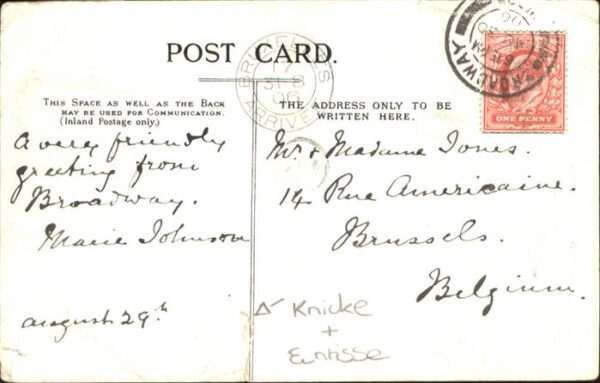 POST CARD.
THIS SPACE AS WELL AS THE BACK
MAY BE USED FOR COMMUNICATION.
(Inland Postage only.)
A very friendly
greeting from
Broadway.
Marie Johnson
August 29th
THE ADDRESS ONLY TO BE
WRITTEN HERE.
Mr & Madame Jones.
14 Rue Americaine.
Brussels.
Belgium.
Knicke
+
BRUXELLES
17
31-8
06
ARRIVEE
BROADWAY
06
ONE PENNY